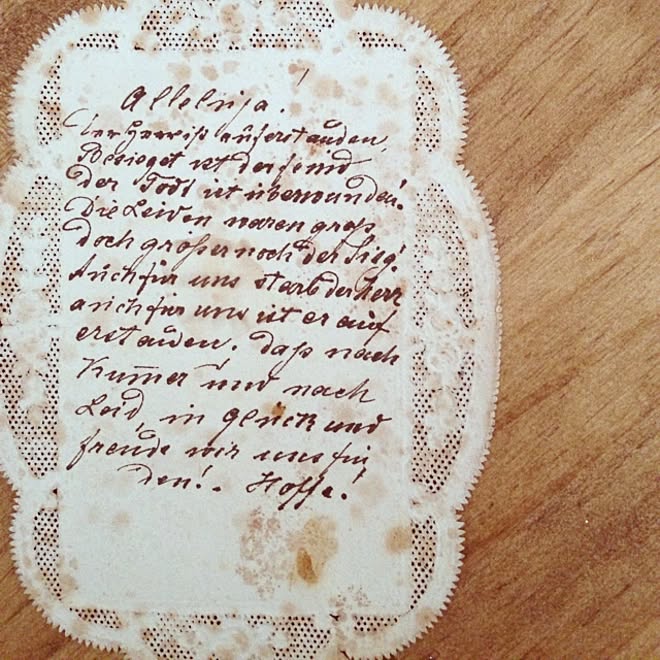 Alleluja!
Der Herr ist auferstanden,
Besieget ist der feind
der Todt ist überwunden!
Die Leiden waren groß
doch größer noch der Sieg!
Auch für uns starb der Herr
auch für uns ist er auf
erstanden, daß nach
Kum̄er und nach
Leid in Glück und
freude wir uns fin
den! - Hoffe!